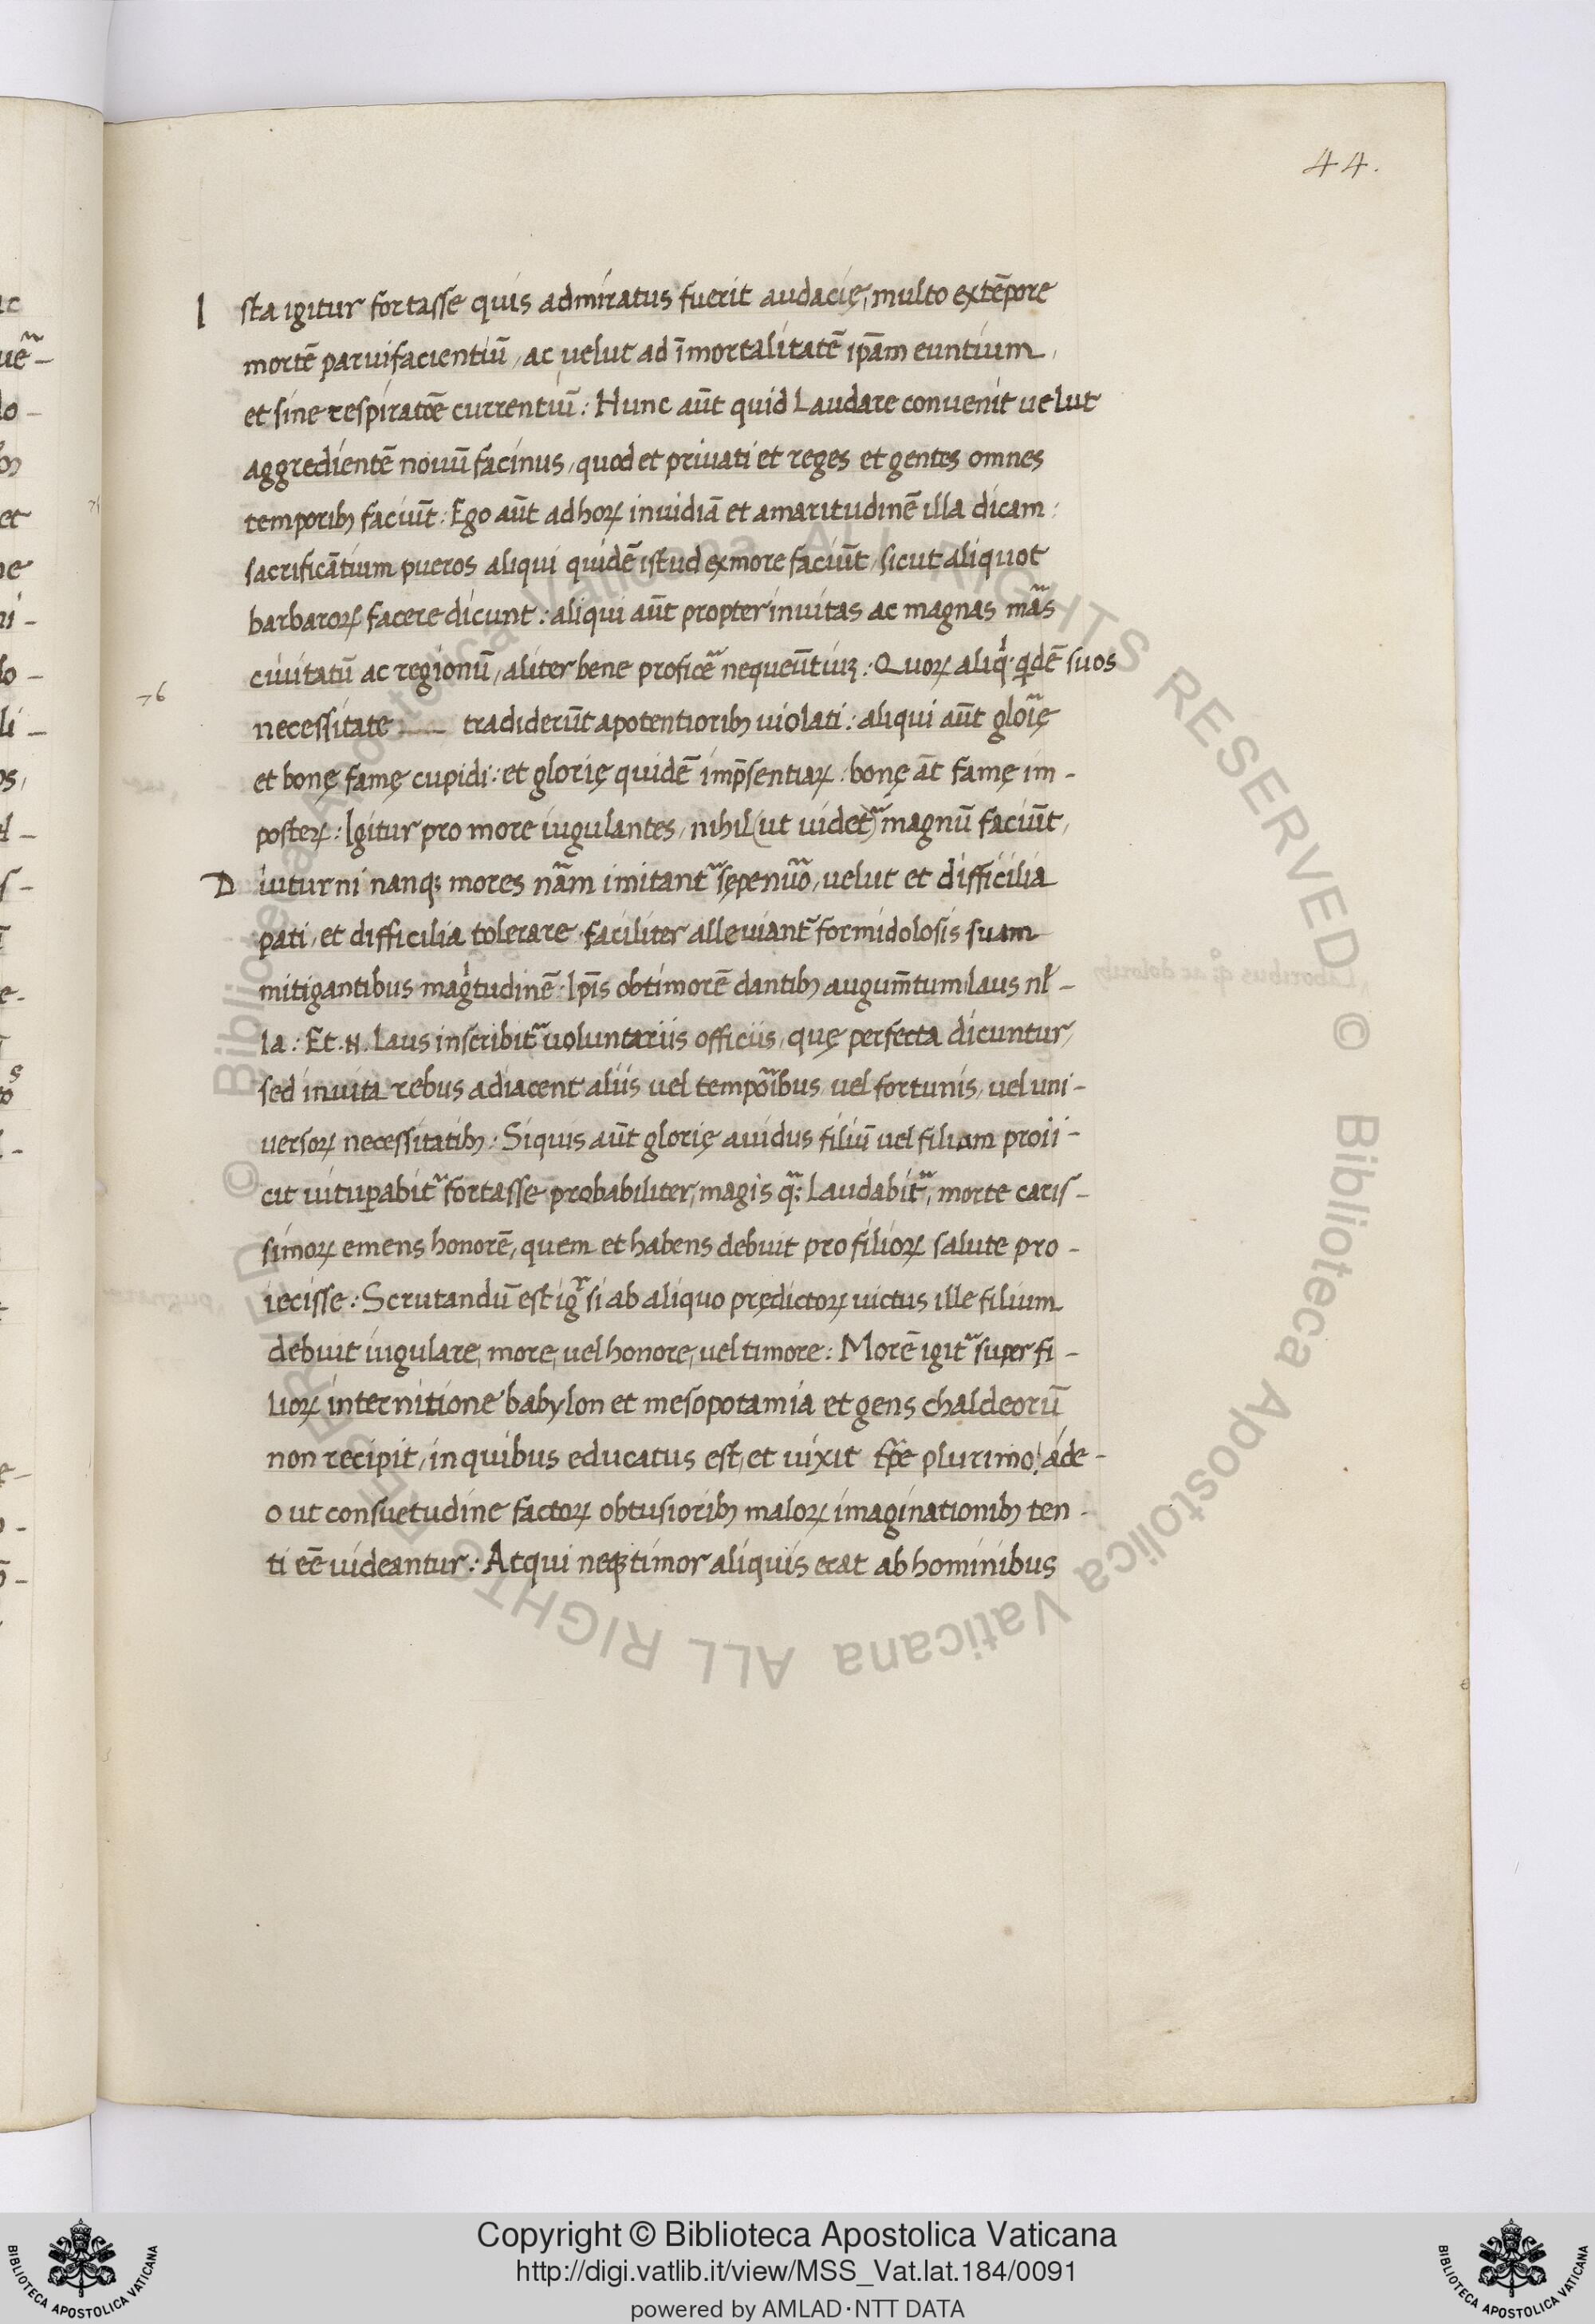 44.
Ista igitur fortasse quis admiratus fuerit audacię, multo extēpore
mortē paruifacientiū, ac velut ad īmortalitatē ip̄am euntium,
et sine respiratōe currentiū: Hunc aūt quid Laudare convenit velut
aggredientē novū facinus, quod et privati et reges et gentes omnes
temporibꝫ faciūt: Ego aūt ad horꝝ invidiā et amaritudinē illa dicam:
sacrificātium pueros aliqui quidē istud ex more faciūt, sicut aliquot
barbarorꝝ facere dicunt: aliqui aūt propter invitas ac magnas mās
civitatū ac regionū, aliter bene proficē nequeūtiuꝫ: Quorꝝ aliq̄ qͥdē suos
76
necessitate —— tradiderūt a potentioribꝫ violati: aliqui aūt gloīę
et bonę famę cupidi: et glorię quidē imp̄sentiarꝝ: bonę āt famę im-
posterꝝ: Igitur pro more iugulantes, nihil (ut videt̄) magnū faciūt,
Diuturni nanqꝫ mores nām imitant̄ sępenūo, velut et difficilia
pati, et difficilia tolerare faciliter alleviant̄ formidolosis suam
mitigantibus magͥtudinē: Ip̄is ob timorē dantibꝫ augum̄tum laus nł-
la: Et .N. Laus inscribit̄ voluntariis officiis, quę perfecta dicuntur,
sed invita rebus adiacent aliis vel tempōibus vel fortunis, vel uni-
versorꝝ necessitatibꝫ: Siquis aūt glorię avidus filiū vel filiam proii-
cit vituꝑabit̄ fortasse probabiliter, magis q̄ꝫ Laudabit̄, morte caris-
simorꝝ emens honorē, quem et habens debuit pro filiorꝝ salute pro-
iecisse: Scrutandū est igͬ si ab aliquo prędictorꝝ victus ille filium
debuit iugulare, more, vel honore, vel timore: Morē igit̄ super fi-
liorꝝ internitione babylon et mesopotamia et gens chaldeorū
non recipit, in quibus educatus est, et vixit tp̄e plurimo! ade-
o ut consuetudine factorꝝ obtusioribꝫ malorꝝ imaginationibꝫ ten-
ti eē videantur: Atqui neqꝫ timor aliquis erat ab hominibus
Copyright © Biblioteca Apostolica Vaticana
http://digi.vatlib.it/view/MSS_Vat.lat.184/0091
powered by AMLAD·NTT DATA
BIBLIOTECA APOSTOLICA VATICANA
BIBLIOTECA APOSTOLICA VATICANA
© Biblioteca Apostolica Vaticana ALL RIGHTS RESERVED © Biblioteca Apostolica Vaticana ALL RIGHTS RESERVED